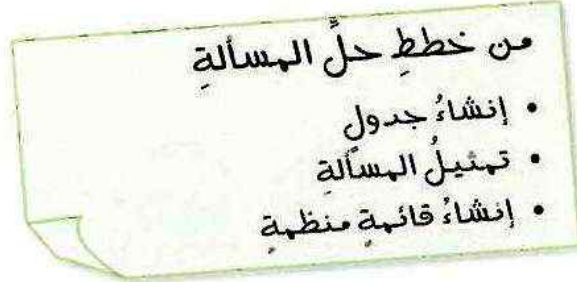 من خططِ حلِّ المسألةِ
• إنشاءُ جدولٍ
• تمثيلُ المسألةِ
• إنشاءُ قائمةٍ منظمةٍ